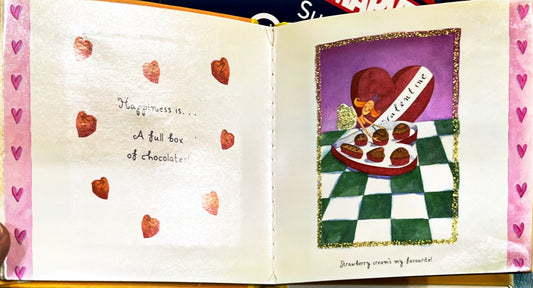 Happiness is...
A full box
of chocolates!
valentine
Strawberry cream's my favourite!